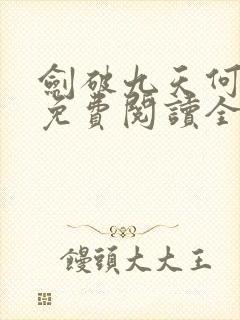 劍破九天何
免費閱讀全
饅頭大大王